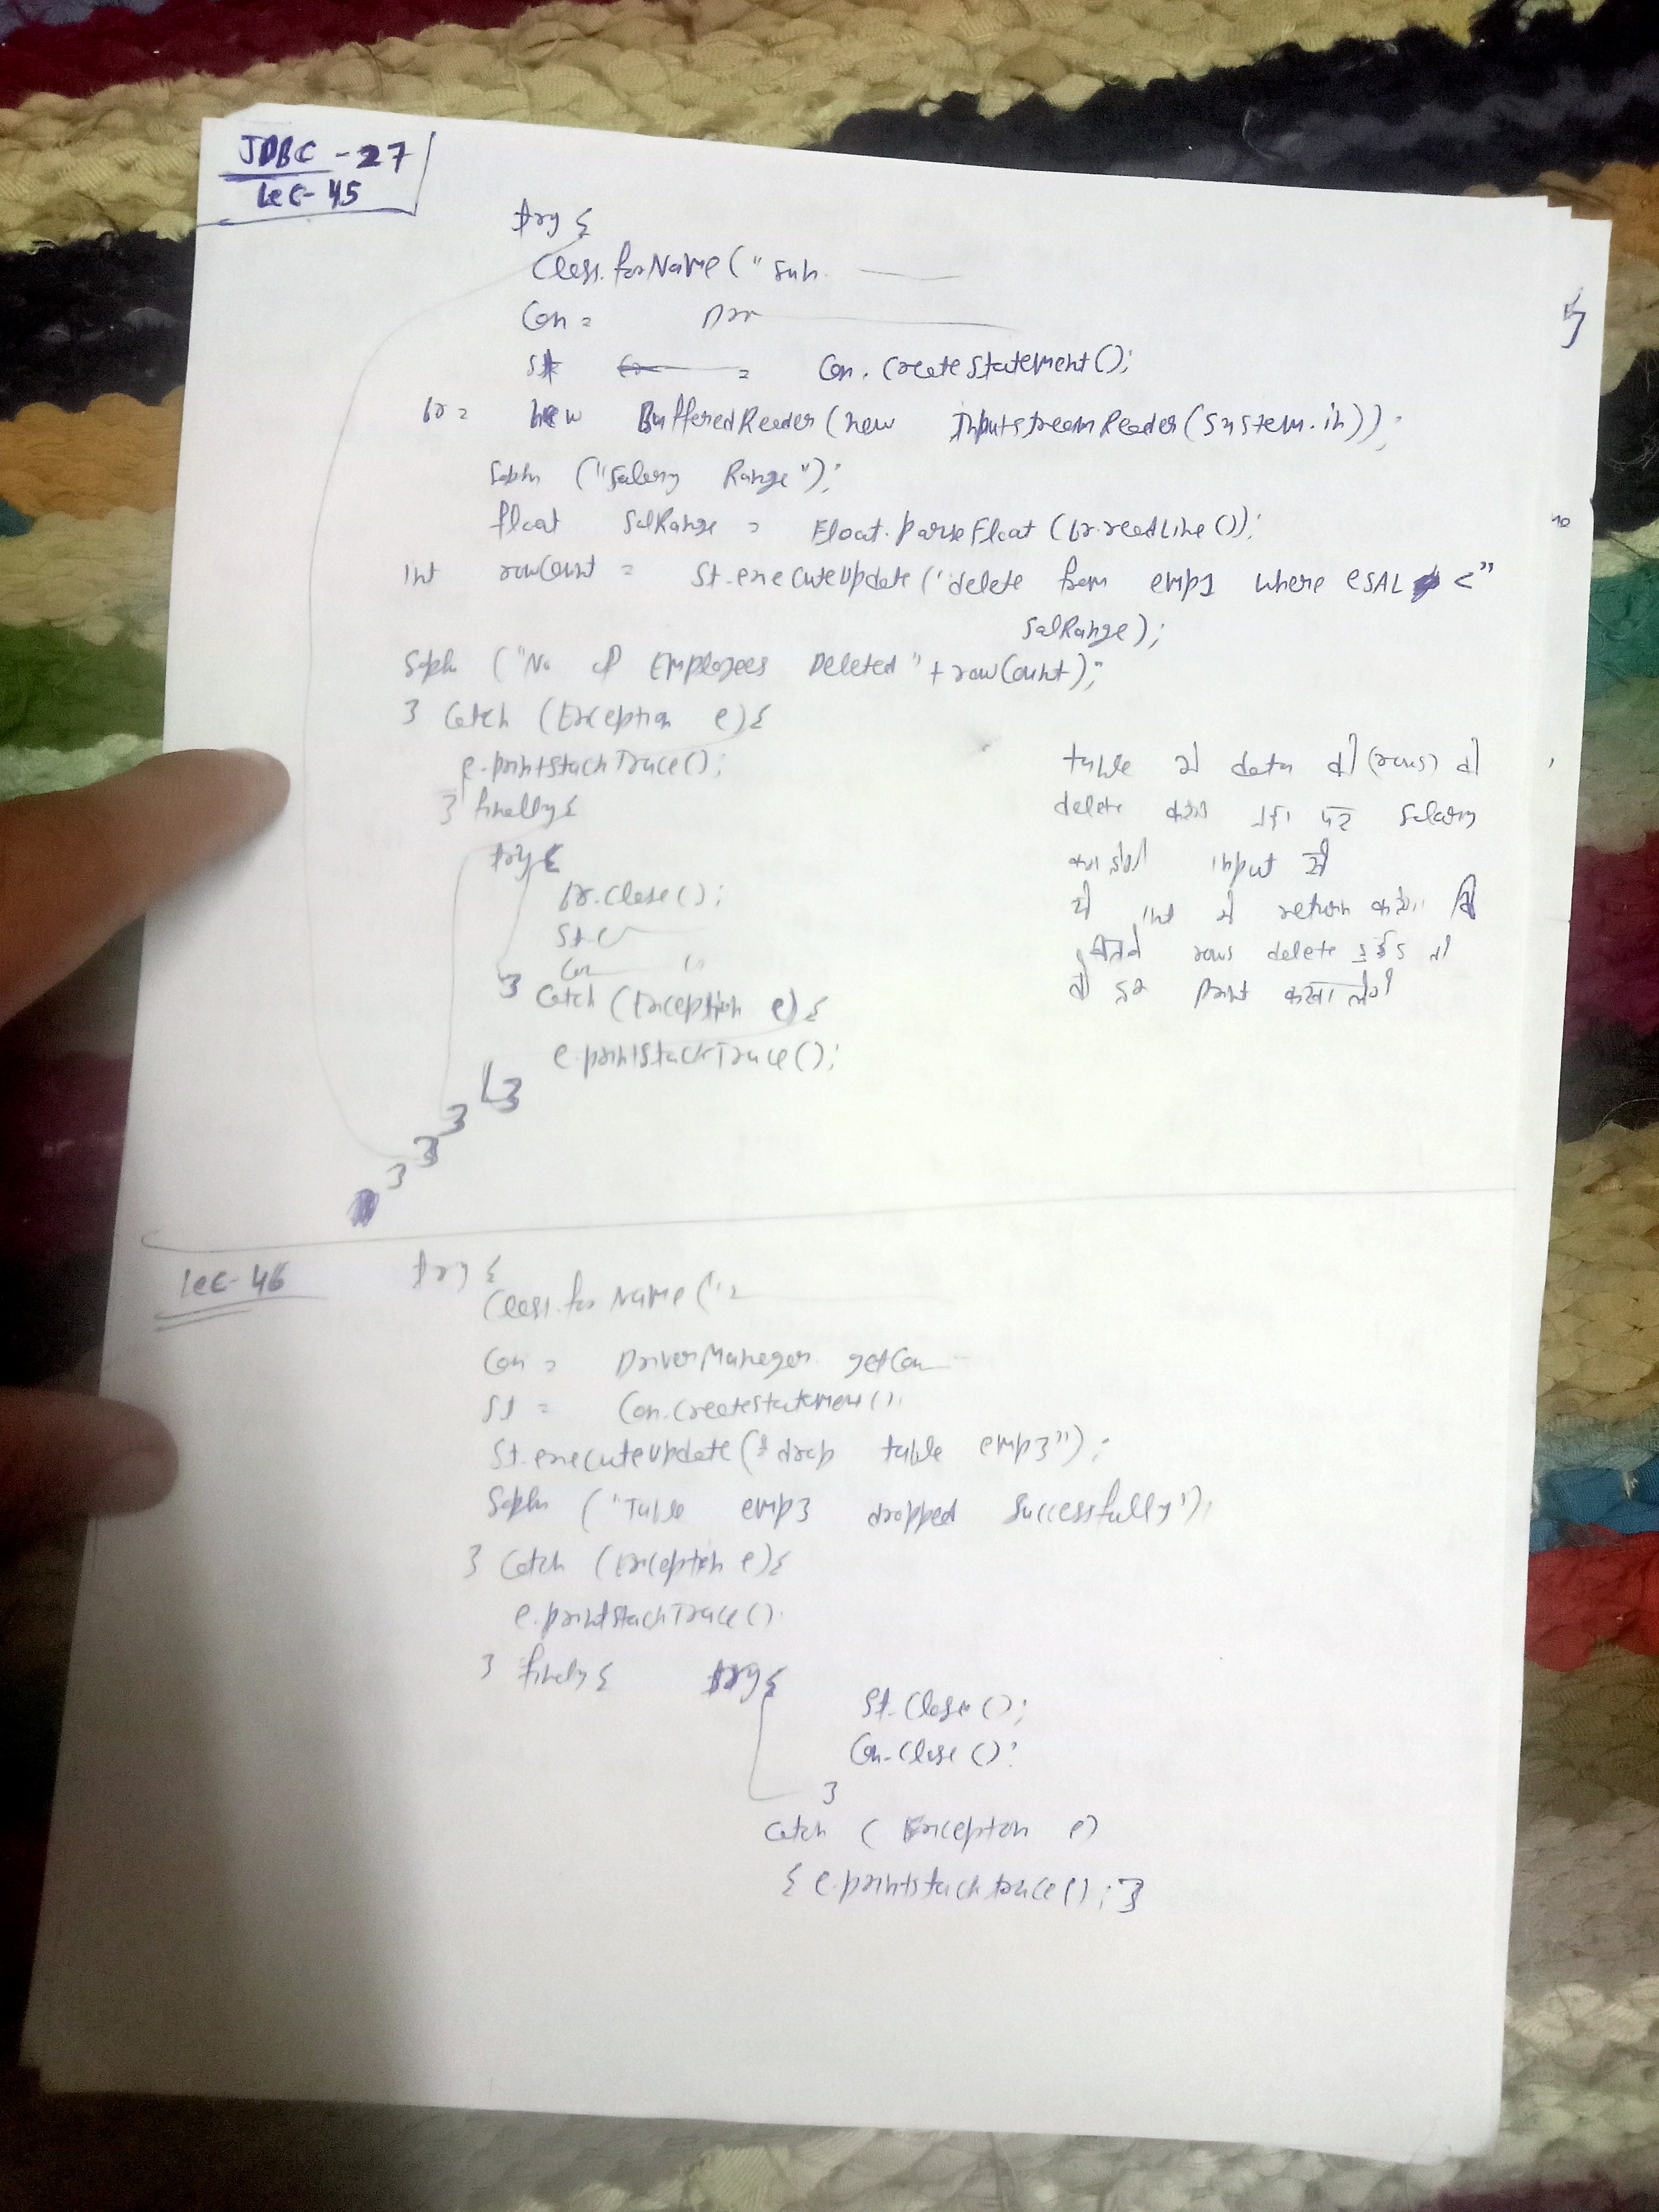 JDBC - 27
Lec - 45
try {
Class.forName("sun.
Con =
St = Con.createStatement();
br = new BufferedReader(new InputstreamReader(System.in));
Sopln ("Salary Range");
float salRange = Float.parseFloat(br.readLine());
int rowCount = St.executeUpdate("delete from emp1 where eSAL <"
salRange);
Sopln ("No of Employees Deleted"+rowCount);
} Catch (Exception e){
e.printStackTrace();
} finally{
try{
br.close();
St.c
Con
} Catch (Exception e){
e.printStackTrace();
}
}
}
}
table में data को (rows) को
delete करना salary
input से
int में return करेगा कि
rows delete
print
Lec-46
try {
Class.forName("
Con = DriverManager.getCon
St = Con.createStatement();
St.executeUpdate("drop table emp3");
Sopln ("Table emp3 dropped Successfully");
} Catch (Exception e){
e.printStackTrace()
} finaly{ try{
St.Close();
Con.Close();
}
Catch (Exception e)
{ e.printstacktrace(); }